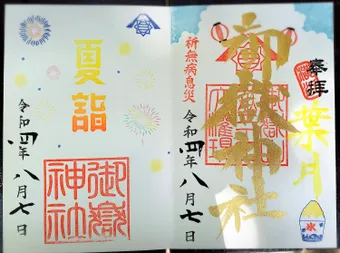 奉拝
葉月
御嶽神社
祈無病息災
令和四年八月七日
氷
夏詣
令和四年八月七日
御嶽
神社